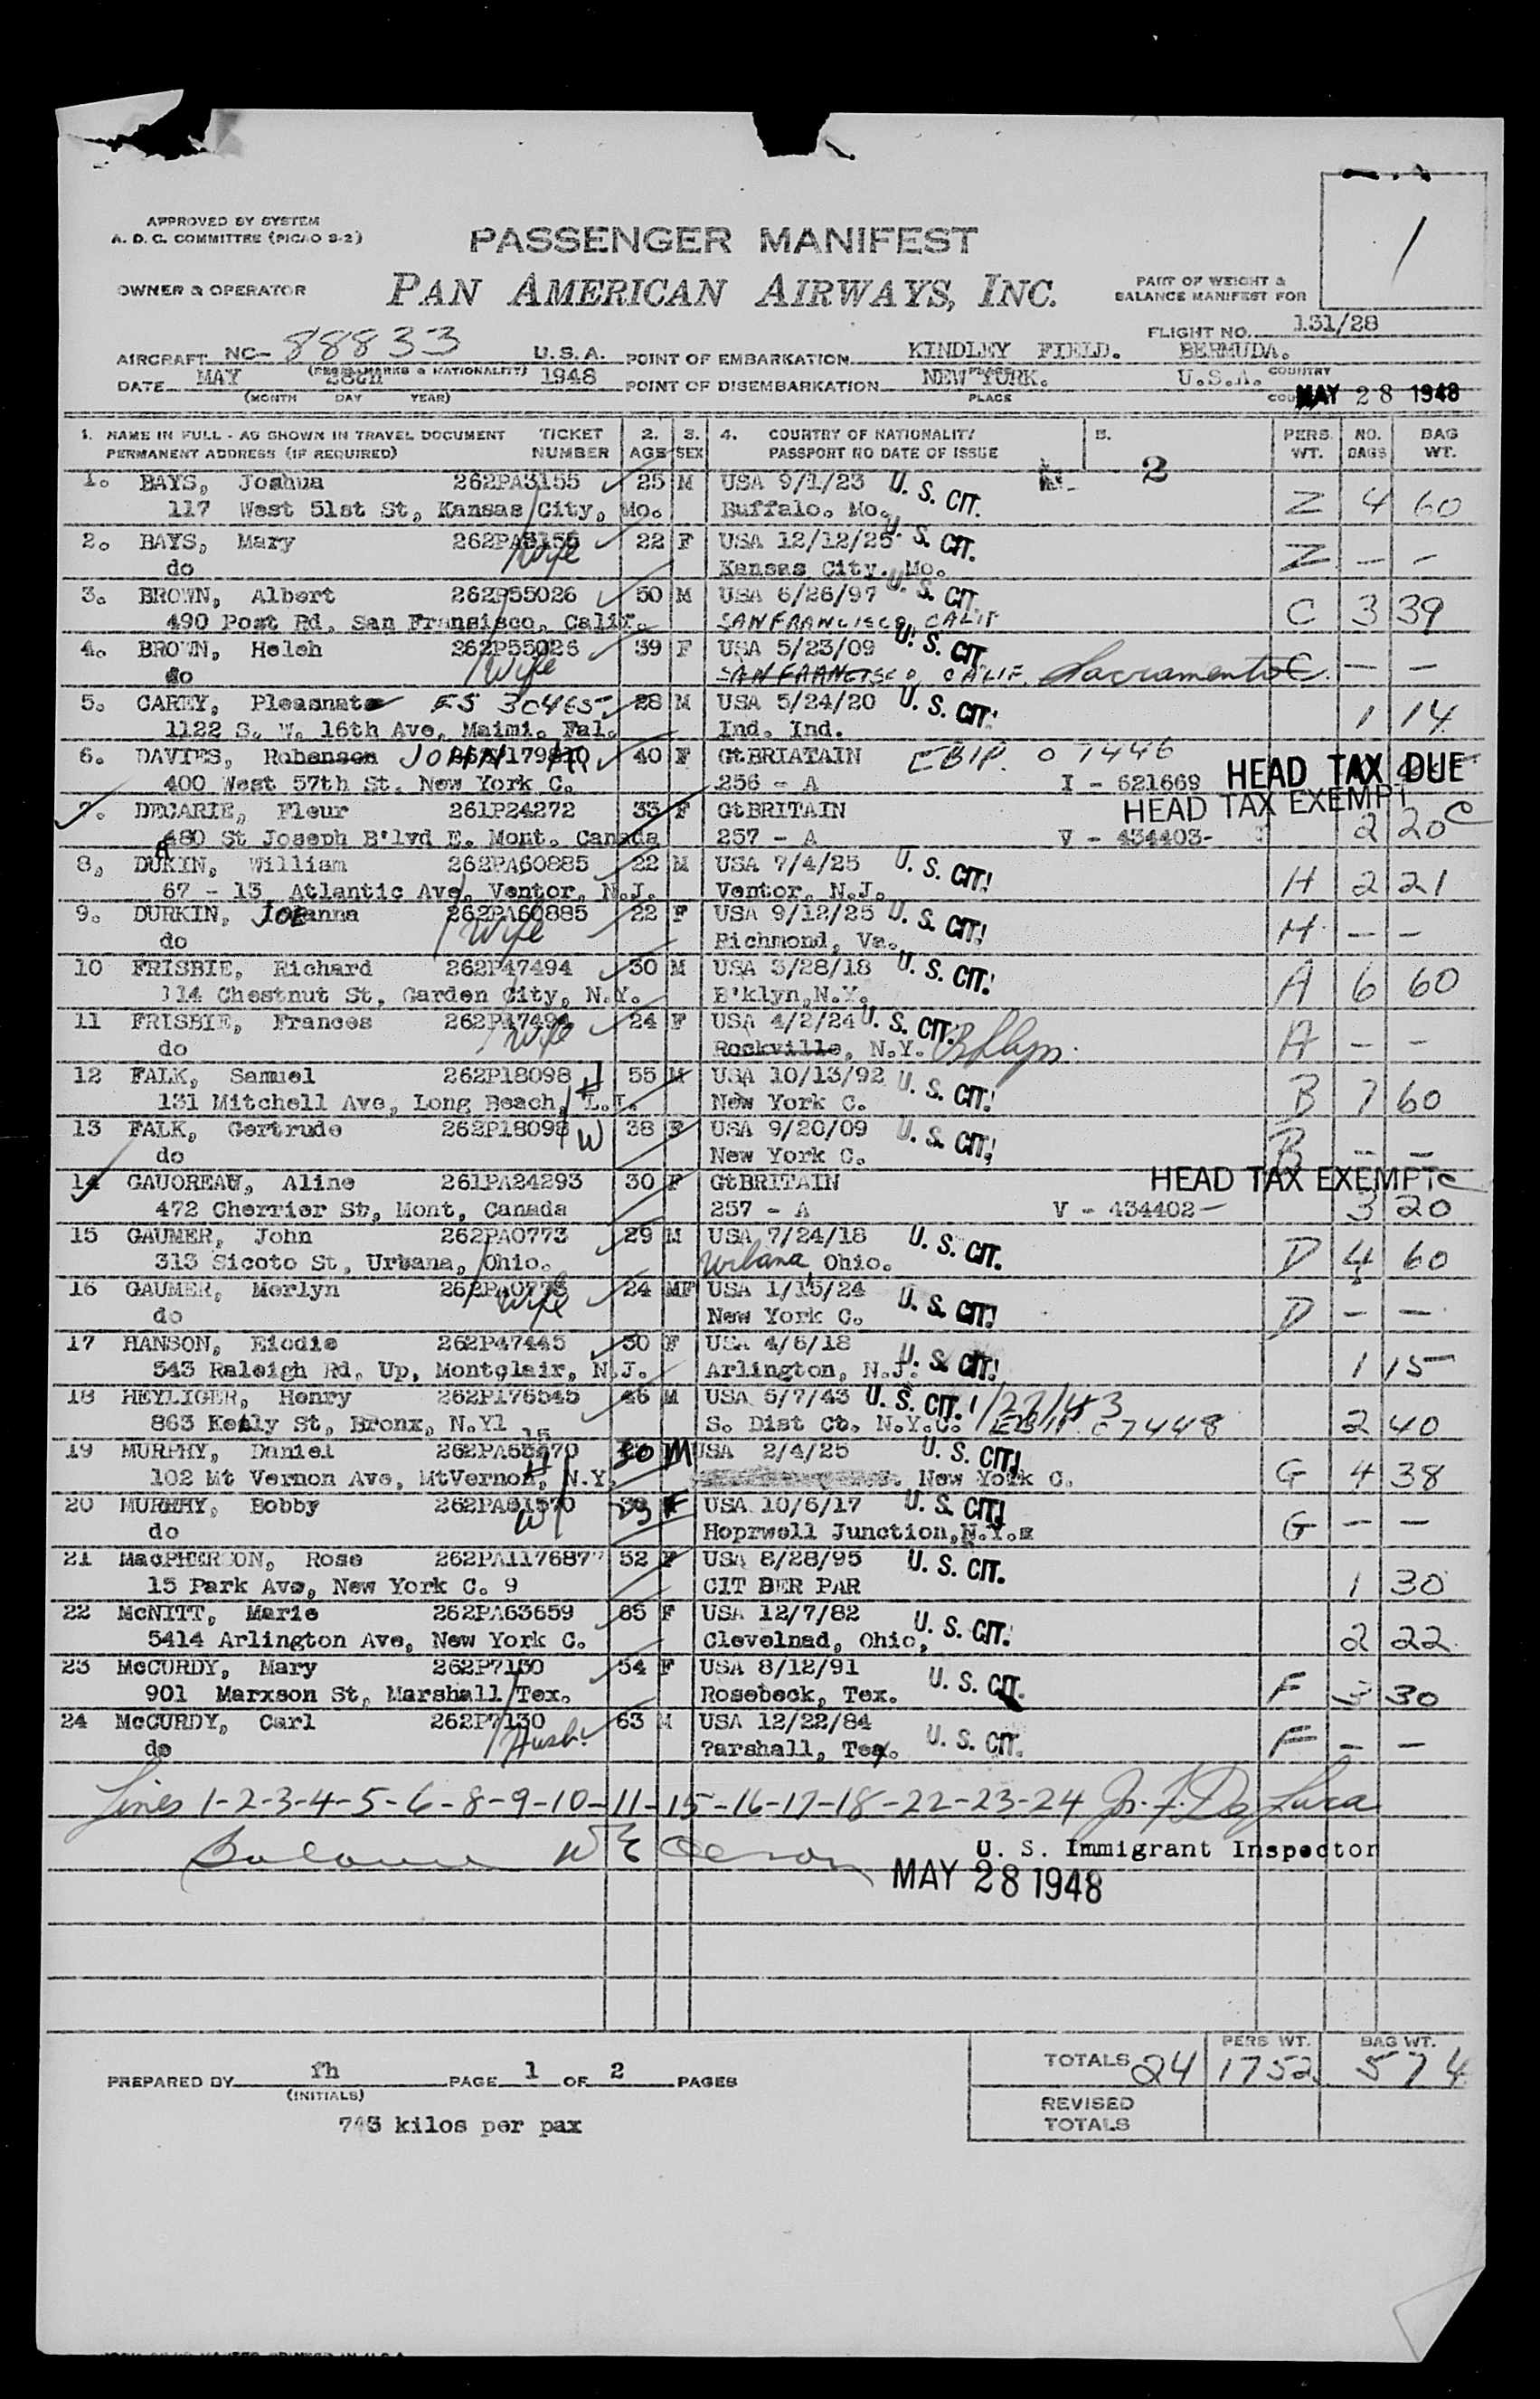 APPROVED BY SYSTEM
A. D. C. COMMITTEE (PICAO S-2)
PASSENGER MANIFEST
1
OWNER & OPERATOR
PAN AMERICAN AIRWAYS, INC.
PART OF WEIGHT &
BALANCE MANIFEST FOR
FLIGHT NO. 131/28
AIRCRAFT NC- 88833 U.S.A. POINT OF EMBARKATION KINDLEY FIELD. BERMUDA.
(REGIS. MARKS & NATIONALITY) PLACE COUNTRY
DATE MAY 28th 1948 POINT OF DISEMBARKATION NEW YORK. U.S.A.
(MONTH DAY YEAR) PLACE MAY 28 1948
1. NAME IN FULL - AS SHOWN IN TRAVEL DOCUMENT TICKET 2. 3. 4. COUNTRY OF NATIONALITY 5. PERS. NO. BAG
PERMANENT ADDRESS (IF REQUIRED) NUMBER AGE SEX PASSPORT NO DATE OF ISSUE 2 WT. BAGS WT.
1. BAYS, Joshua 262PA3155 25 M USA 9/1/23 U. S. CIT.
117 West 51st St, Kansas City, Mo. Buffalo. Mo. Z 4 60
2. BAYS, Mary 262PA3155 22 F USA 12/12/25 U. S. CIT.
do Wife Kansas City. Mo. Z - -
3. BROWN, Albert 262P55026 50 M USA 6/26/97 U. S. CIT.
490 Post Rd, San Fransisco, Calif. SAN FRANCISCO, CALIF C 3 39
4. BROWN, Helen 262P55026 39 F USA 5/23/09 U. S. CIT
do Wife SAN FRANCISCO, CALIF. Sacramento C - -
5. CAREY, Pleasnate ES 30465 28 M USA 5/24/20 U. S. CIT.
1122 S. W. 16th Ave, Maimi. Fal. Ind. Ind. 1 14
6. DAVIES, Robenson JOHN 40 F GtBRIATAIN EBIP. 07446
400 West 57th St. New York C. 256 - A I - 621669 HEAD TAX DUE
7. DECARIE, Fleur 261P24272 33 F GtBRITAIN HEAD TAX EXEMPT
480 St Joseph B'lvd E. Mont. Canada 257 - A V - 434403- 2 20 C
8, DUKIN, William 262PA60885 22 M USA 7/4/25 U. S. CIT.
67 - 13 Atlantic Ave, Ventor, N.J. Ventor. N.J. H 2 21
9. DURKIN, JOEanna 262PA60885 22 F USA 9/12/25 U. S. CIT.
do Wife Richmond, Va. H - -
10 FRISBIE, Richard 262P47494 30 M USA 3/28/18 U. S. CIT.
114 Chestnut St, Garden City, N.Y. B'klyn,N.Y. A 6 60
11 FRISBIE, Frances 262P47494 24 F USA 4/2/24 U. S. CIT.
do Wife Rockville, N.Y. Bklyn. A - -
12 FALK, Samuel 262P18098 H 55 M USA 10/13/92 U. S. CIT.
131 Mitchell Ave, Long Beach, L.I. New York C. B 7 60
13 FALK, Gertrude 262P18098 W 38 F USA 9/20/09 U. S. CIT.
do New York C. B - -
14 GAUOREAU, Aline 261PA24293 30 F GtBRITAIN HEAD TAX EXEMPT C
472 Cherrier St, Mont, Canada 257 - A V - 434402- 3 20
15 GAUMER, John 262PA0773 29 M USA 7/24/18 U. S. CIT.
313 Sicoto St, Urbana, Ohio. Urbana, Ohio. D 4 60
16 GAUMER, Merlyn 262PA0773 24 MF USA 1/15/24 U. S. CIT.
do Wife New York C. D - -
17 HANSON, Elodie 262P47445 30 F USA 4/6/18 U. S. CIT.
543 Raleigh Rd, Up, Montclair, N.J. Arlington, N.J. 1 15
18 HEYLIGER, Henry 262P176545 46 M USA 6/7/43 U. S. CIT. 1/27/43
863 Kelly St, Bronx, N.Yl S. Dist Ct. N.Y.C. EBIP. 07448 2 40
19 MURPHY, Daniel 30 M USA 2/4/25 U. S. CIT.
102 Mt Vernon Ave, MtVernon, N.Y. H New York C. G 4 38
20 MURPHY, Bobby 262PA51570 23 F USA 10/6/17 U. S. CIT.
do W Hoprwell Junction,N.Y. G - -
21 MacPHERSON, Rose 262PA117687 52 F USA 8/28/95 U. S. CIT.
15 Park Ave, New York C. 9 CIT BER PAR 1 30
22 McNITT, Marie 262PA63659 65 F USA 12/7/82 U. S. CIT.
5414 Arlington Ave, New York C. Clevelnad, Ohio, 2 22
23 McCURDY, Mary 262P7130 54 F USA 8/12/91 U. S. CIT.
901 Marxson St, Marshall Tex. Rosebeck, Tex. F 3 30
24 McCURDY, Carl 262P7130 63 M USA 12/22/84 U. S. CIT.
do Husb. ?arshall, Tex. F - -
Lines 1-2-3-4-5-6-8-9-10-11-15-16-17-18-22-23-24 Jn. F. De Luca
Balance U. S. Immigrant Inspector
MAY 28 1948
PERS WT. BAG WT.
TOTALS 24 1752 574
PREPARED BY fh PAGE 1 OF 2 PAGES
(INITIALS)
REVISED
TOTALS
743 kilos per pax